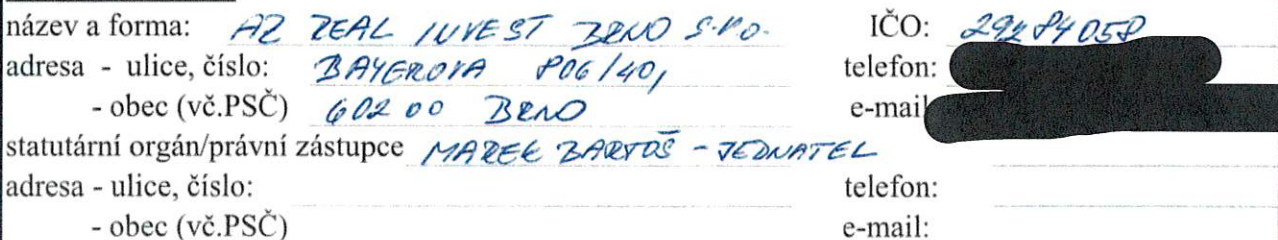 název a forma: AZ REAL INVEST BRNO s.r.o. IČO: 29284058
adresa - ulice, číslo: BAYEROVA 806/40, telefon:
- obec (vč.PSČ) 602 00 BRNO e-mail
statutární orgán/právní zástupce MAREK BARTOŠ - JEDNATEL
adresa - ulice, číslo: telefon:
- obec (vč.PSČ) e-mail: